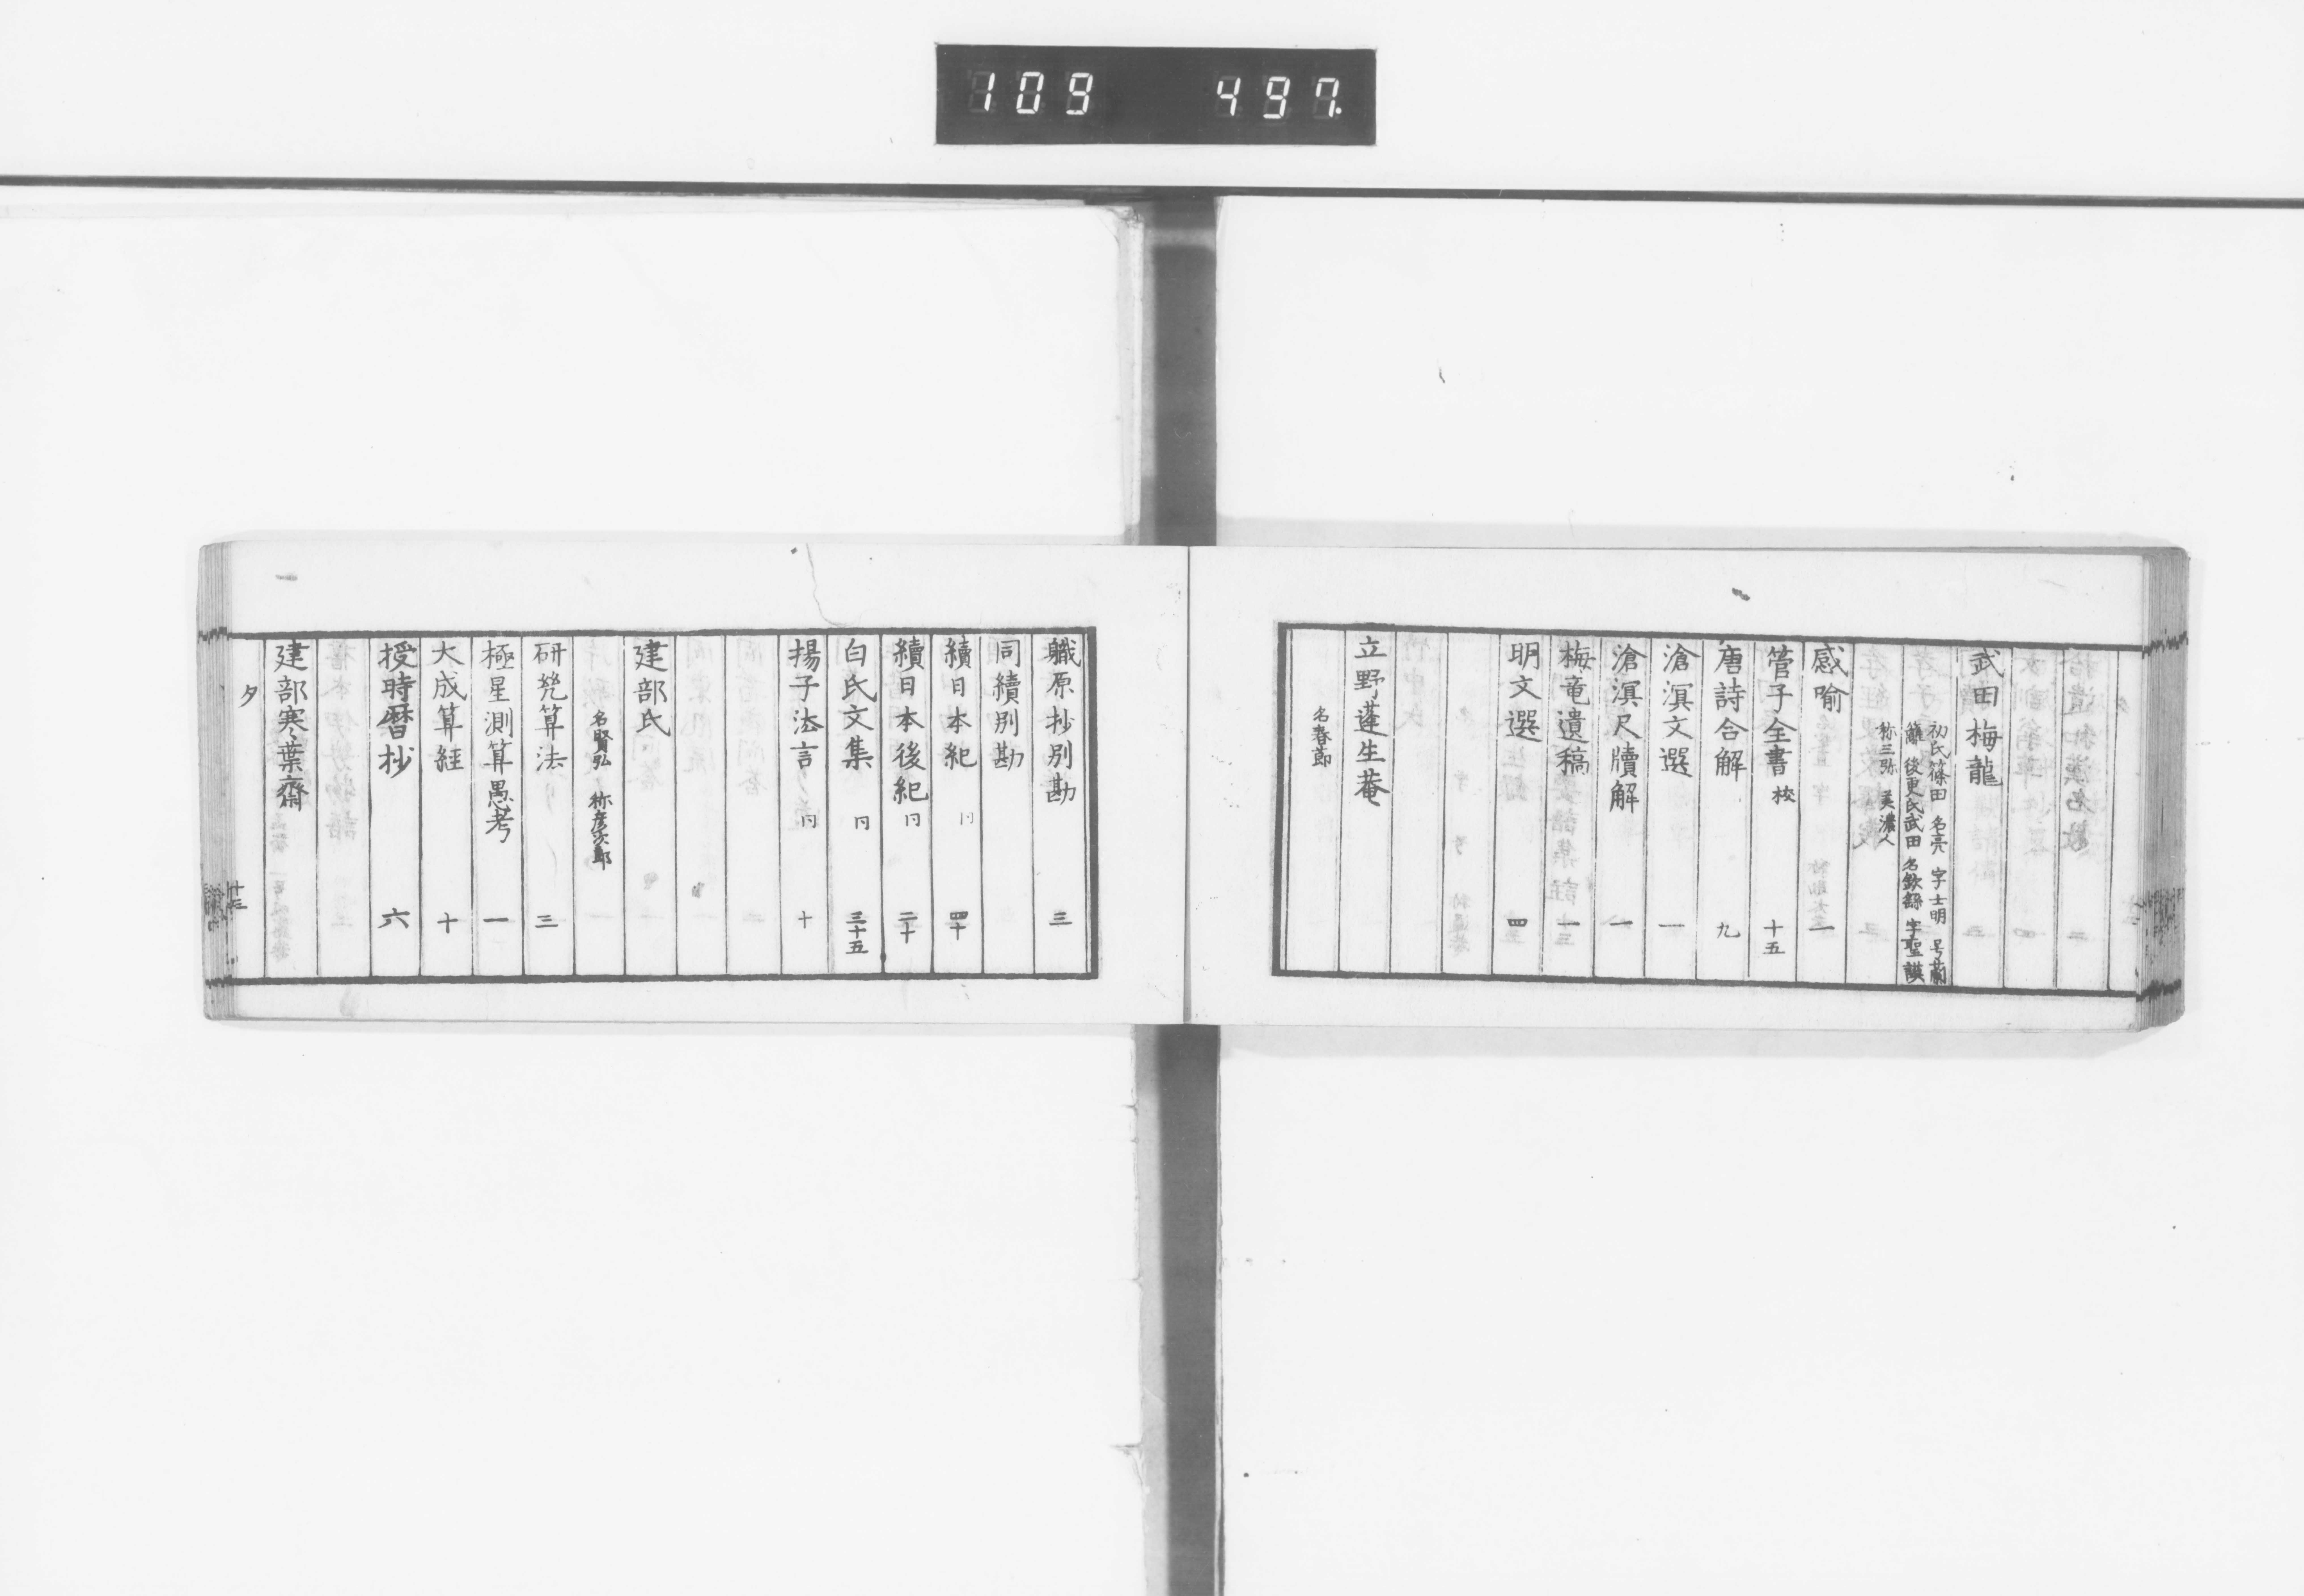 109 497
武田梅龍
初氏篠田 名亮 字士明 号蘭
籬 後更氏武田 名欽繇 字聖謨
称三弥 美濃人
感喻 一
管子全書 校 十五
唐詩合解 九
滄溟文選 一
滄溟尺牘解 一
梅竜遺稿 一
明文選 四
立野蓬生菴
名春節
職原抄別勘 三
同續別勘
續日本紀 同 四十
續日本後紀 同 二十
白氏文集 同 三十五
揚子法言 同 十
建部氏
名賢弘 称彦次郎
研㡬算法 三
極星測算愚考 一
大成算経 十
授時暦抄 六
建部寒葉齋
タ
十三